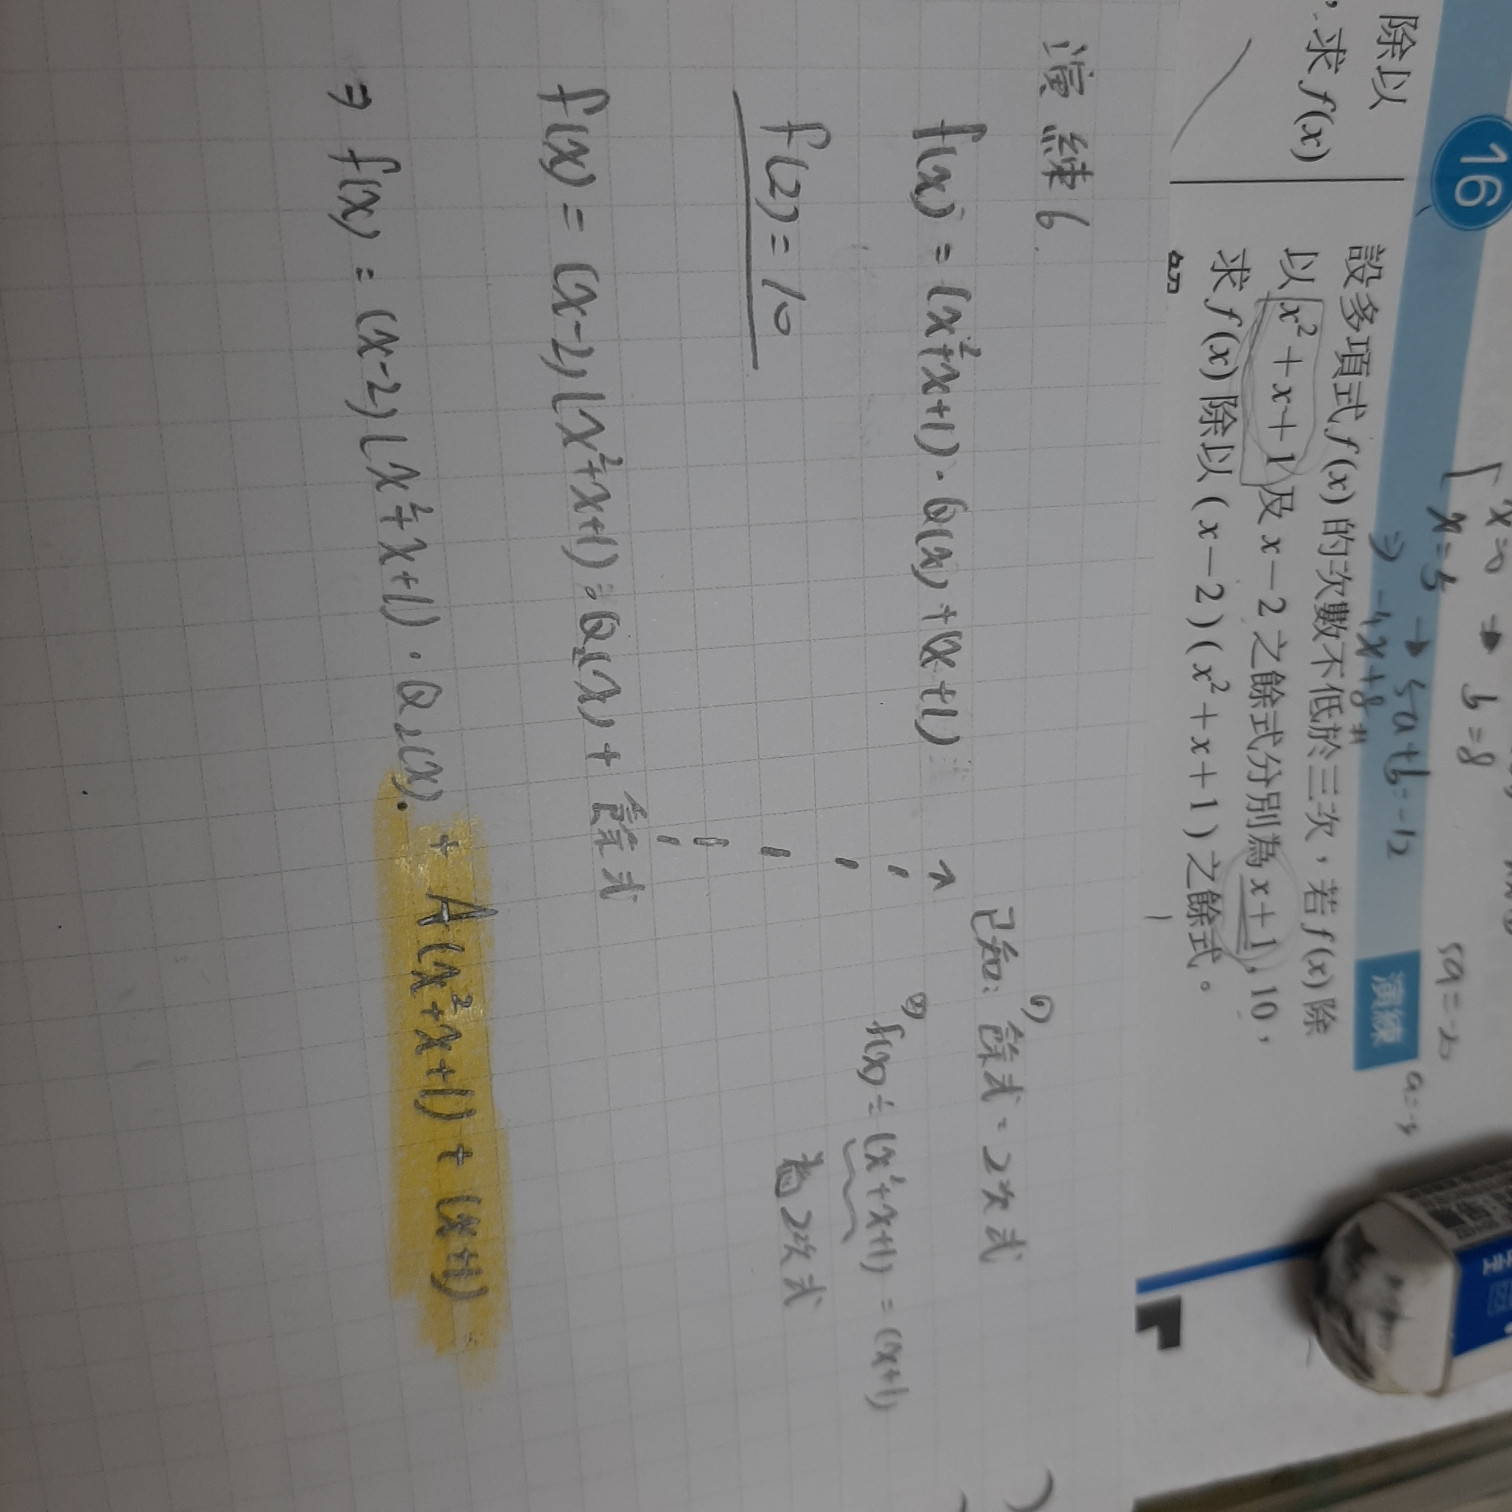 除以
，求 f(x)
16
設多項式 f(x) 的次數不低於三次，若 f(x) 除
以 x²+x+1 及 x-2 之餘式分別為 x+1, 10，
求 f(x) 除以 (x-2)(x²+x+1) 之餘式。
演練
x=0 → b=8
x=5 → 5a+b=-12
⇒ -4x+8 #
演練6.
f(x) = (x²+x+1)·Q(x)+(x+1)
f(2)=10
已知: (1) 餘式=2次式
(2) f(x)÷(x²+x+1)=(x+1)
為2次式
f(x)=(x-2)(x²+x+1)·Q₂(x)+餘式
⇒ f(x)=(x-2)(x²+x+1)·Q₂(x).+A(x²+x+1)+(x+1)